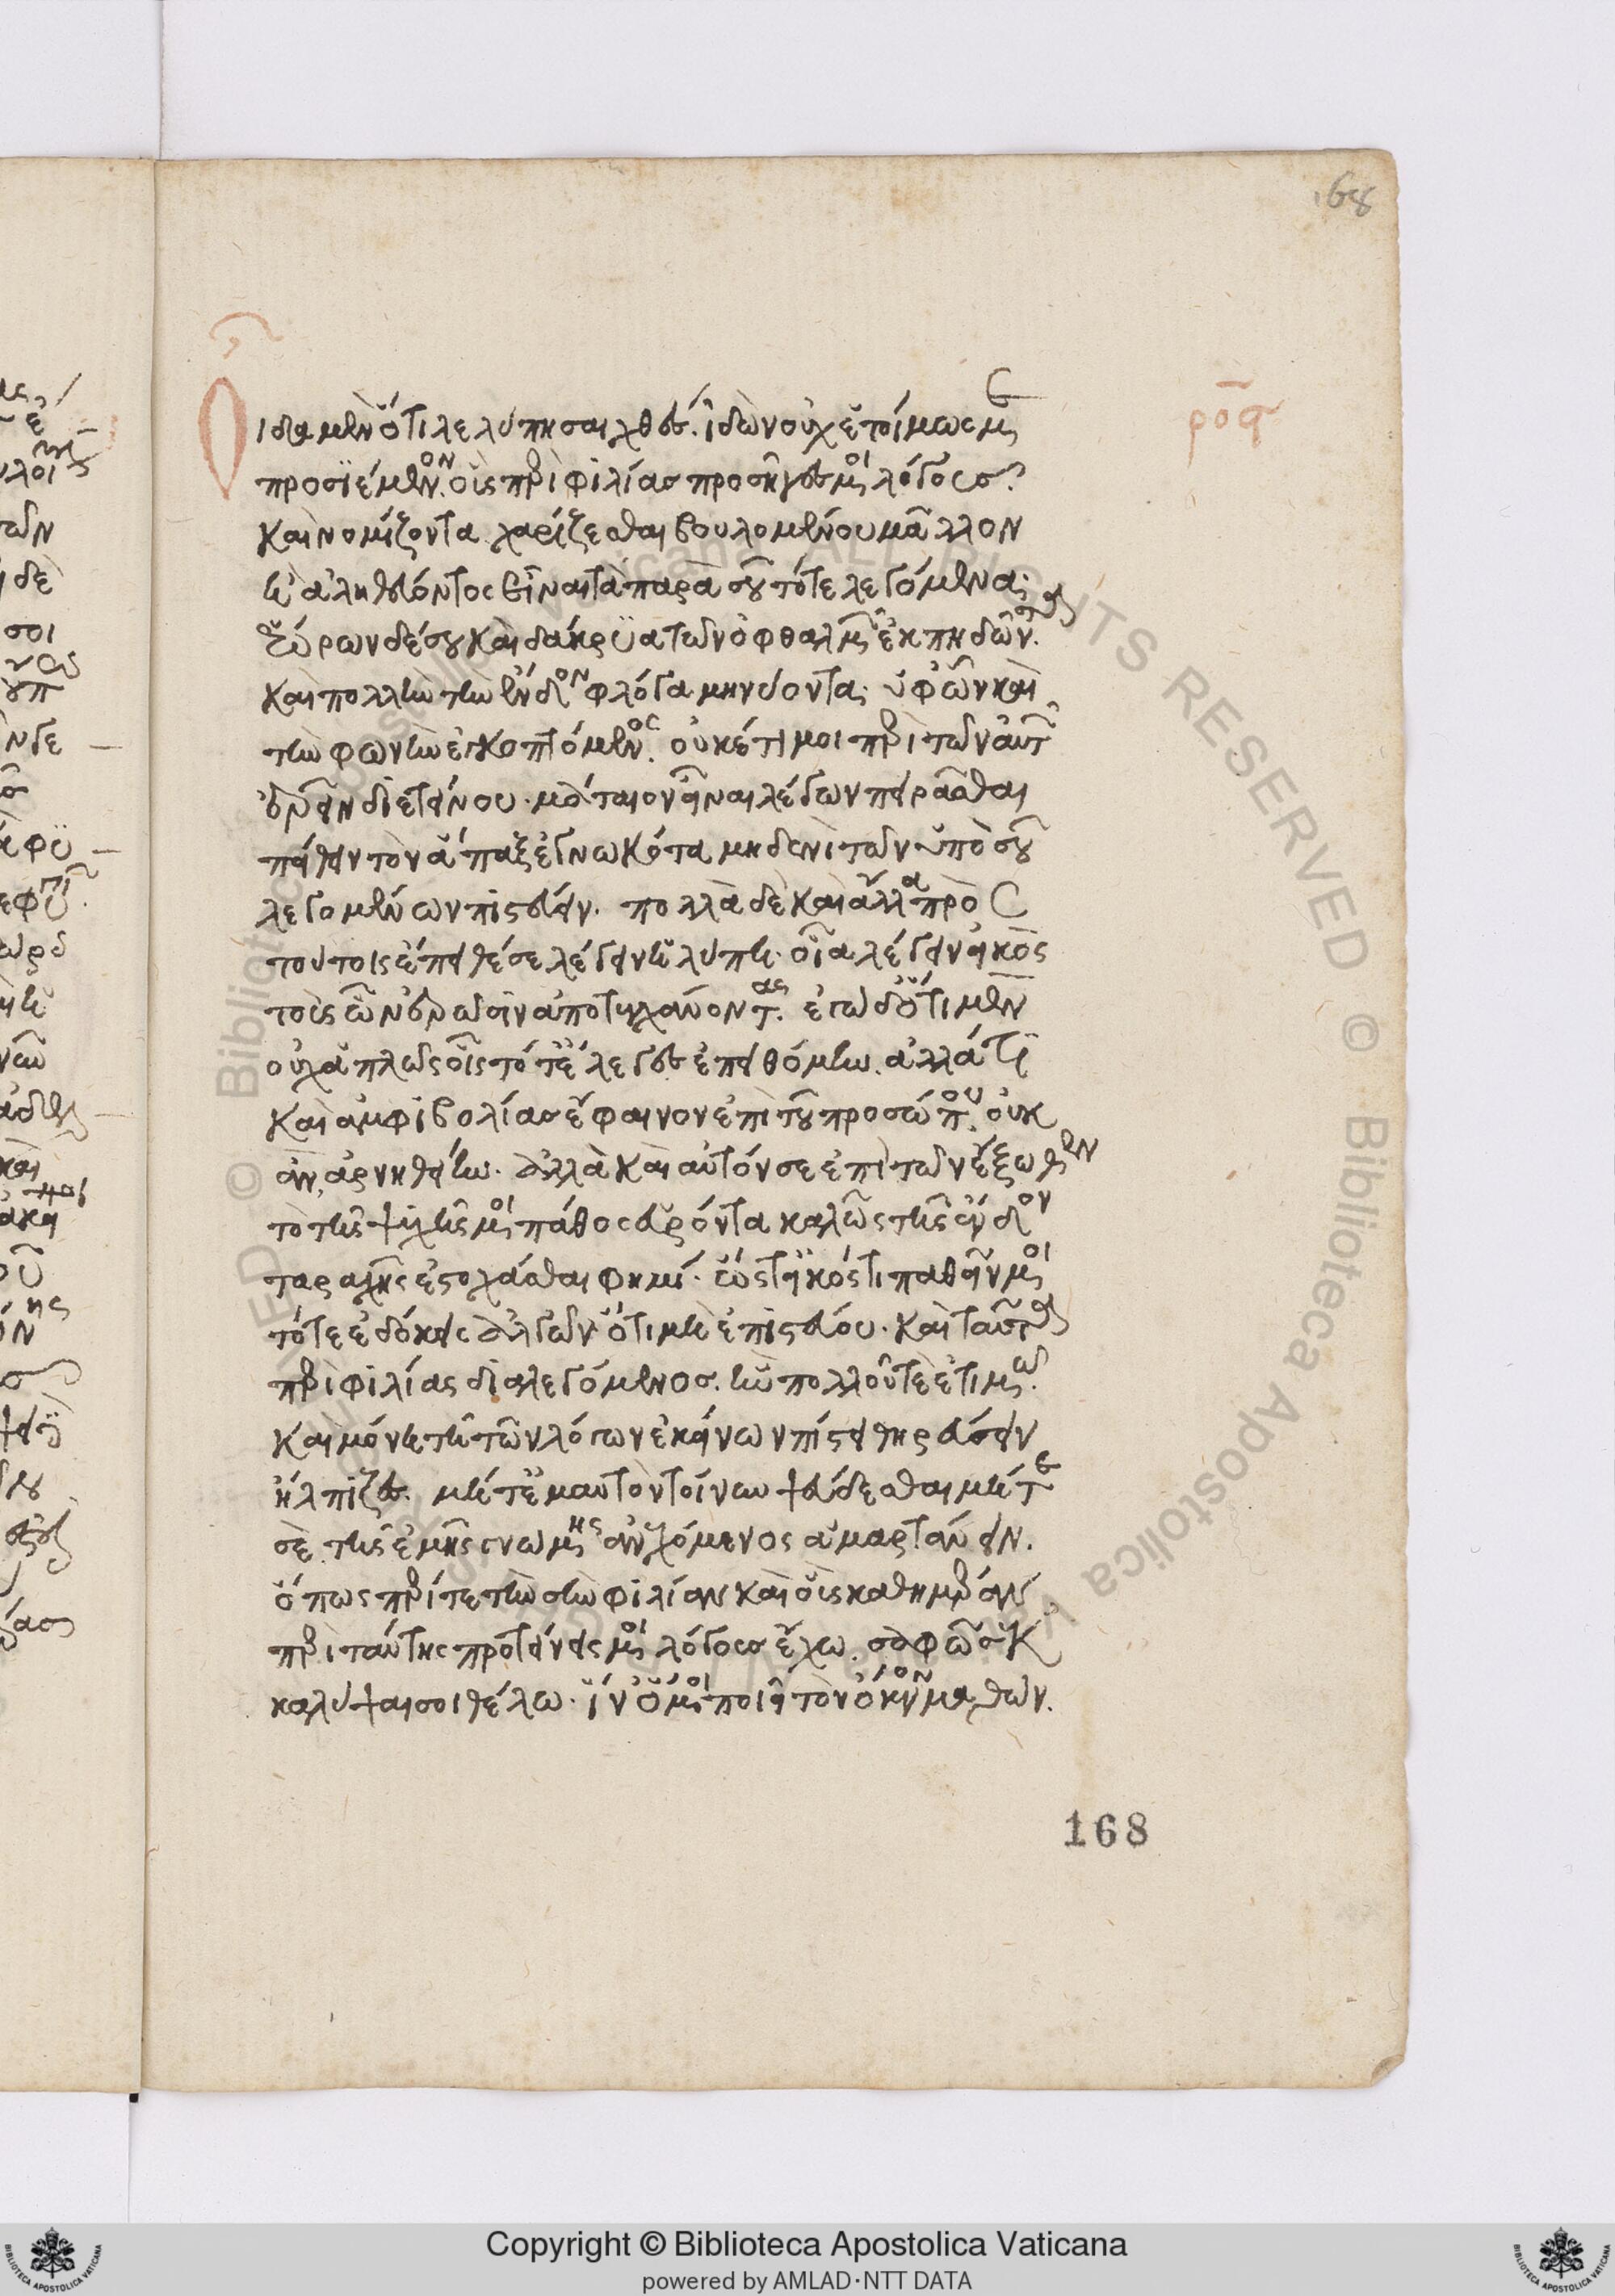 168
ρο̄α
Οἶδα μὲν ὅτι λελύπησαι χθές. ἰδὼν οὐχ ἑτοίμως με
προσϊέμενον. οἷς περὶ φιλίας προσῆγές μοι λόγοις
καὶ νομίζοντα χαρίζεσθαι βουλομένου μᾶλλον
ἢ ἀληθεύοντος εἶναι τὰ παρὰ σοῦ τότε λεγόμενα.
ἑώρων δέ σου καὶ δάκρϋα τῶν ὀφθαλμῶν ἐκπηδῶντα.
καὶ πολλὴν τὴν ἔνδον φλόγα μηνύοντα. ὑφ' ὧν καὶ
τὴν φωνὴν ἐγκοπτόμενος. οὐκέτι μοι περὶ τῶν αὐτῶν
ἐντυχεῖν διετείνου. μάταιον εἶναι λέγων πειρᾶσθαι
πείθειν τὸν ἅπαξ ἐγνωκότα μηδενὶ τῶν ὑπὸ σοῦ
λεγομένων πιστεύειν. πολλὰ δὲ καὶ ἄλλα πρὸς
τούτοις ἐπειθέ σε λέγειν ἡ λύπη. οἷα λέγειν εἰκὸς
τοὺς ὧν ἐρῶσιν ἀποτυγχάνοντας. ἐγὼ δ' ὅτι μὲν
οὐχ ἁπλῶς οἷς τότ' ἔλεγες ἐπειθόμην. ἀλλά τι
καὶ ἀμφιβολίας ἔφαινον ἐπὶ τοῦ προσώπου. οὐκ
ἂν ἀρνηθείην. ἀλλὰ καὶ αὐτόν σε ἐπὶ τῶν ἔξωθεν
τὸ τῆς ψυχῆς μοι πάθος εὑρόντα καλῶς τῆς ἔνδον
ταραχῆς ἐστοχάσθαι φημί. ὥστ' εἰκός τι παθεῖν μοι
τότε ἐδόκεις ἀλγῶν ὅτι μὴ ἐπιστεύου. καὶ ταῦτα
περὶ φιλίας διαλεγόμενος. ἣν πολλοῦ τε ἐτίμω.
καὶ μόνῃ τῇ τῶν λόγων ἐκείνων πίστει θηρεύσειν
ἤλπιζες. μήτ' ἐμαυτὸν τοίνυν ψεύδεσθαι μήτε
σὲ τῆς ἐμῆς γνώμης ἀνεχόμενος ἁμαρτάνειν.
ὅπως περί τε τὴν σὴν φιλίαν καὶ οὓς καθημέραν
περὶ ταύτης προτείνεις μοι λόγους ἔχω. σαφῶς ἐκ
καλύψαι σοι θέλω. ἵν' ὅ μοι ποιεῖ τὸν ὄκνον μαθών.
168
Copyright © Biblioteca Apostolica Vaticana
powered by AMLAD·NTT DATA